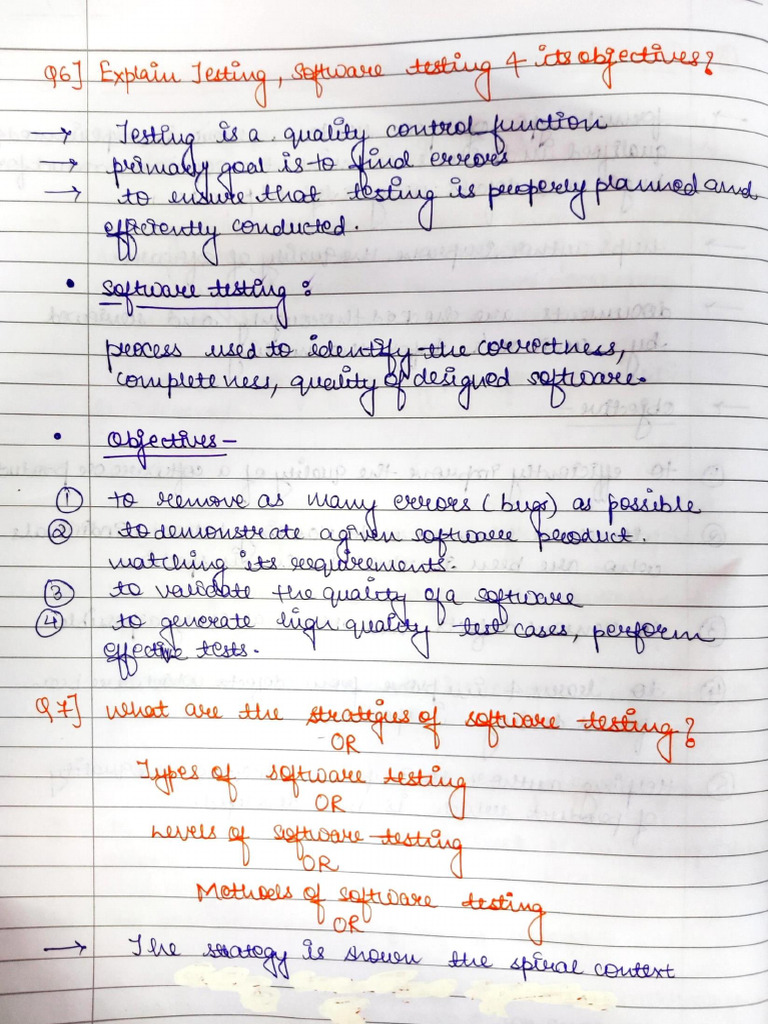 Q6] Explain Testing, Software testing & its objectives?
→ Testing is a quality control function
→ primary goal is to find errors
→ to ensure that testing is properly planned and
efficiently conducted.
• Software testing :
process used to identify the correctness,
completeness, quality of designed software.
• Objectives -
① to remove as many errors (bugs) as possible
② to demonstrate a given software product.
matching its requirements.
③ to validate the quality of a software
④ to generate high quality test cases, perform
effective tests.
Q7] What are the strattgies of software testing?
OR
Types of software testing
OR
Levels of software testing
OR
Methods of software testing
OR
→ The strategy is shown the spiral context